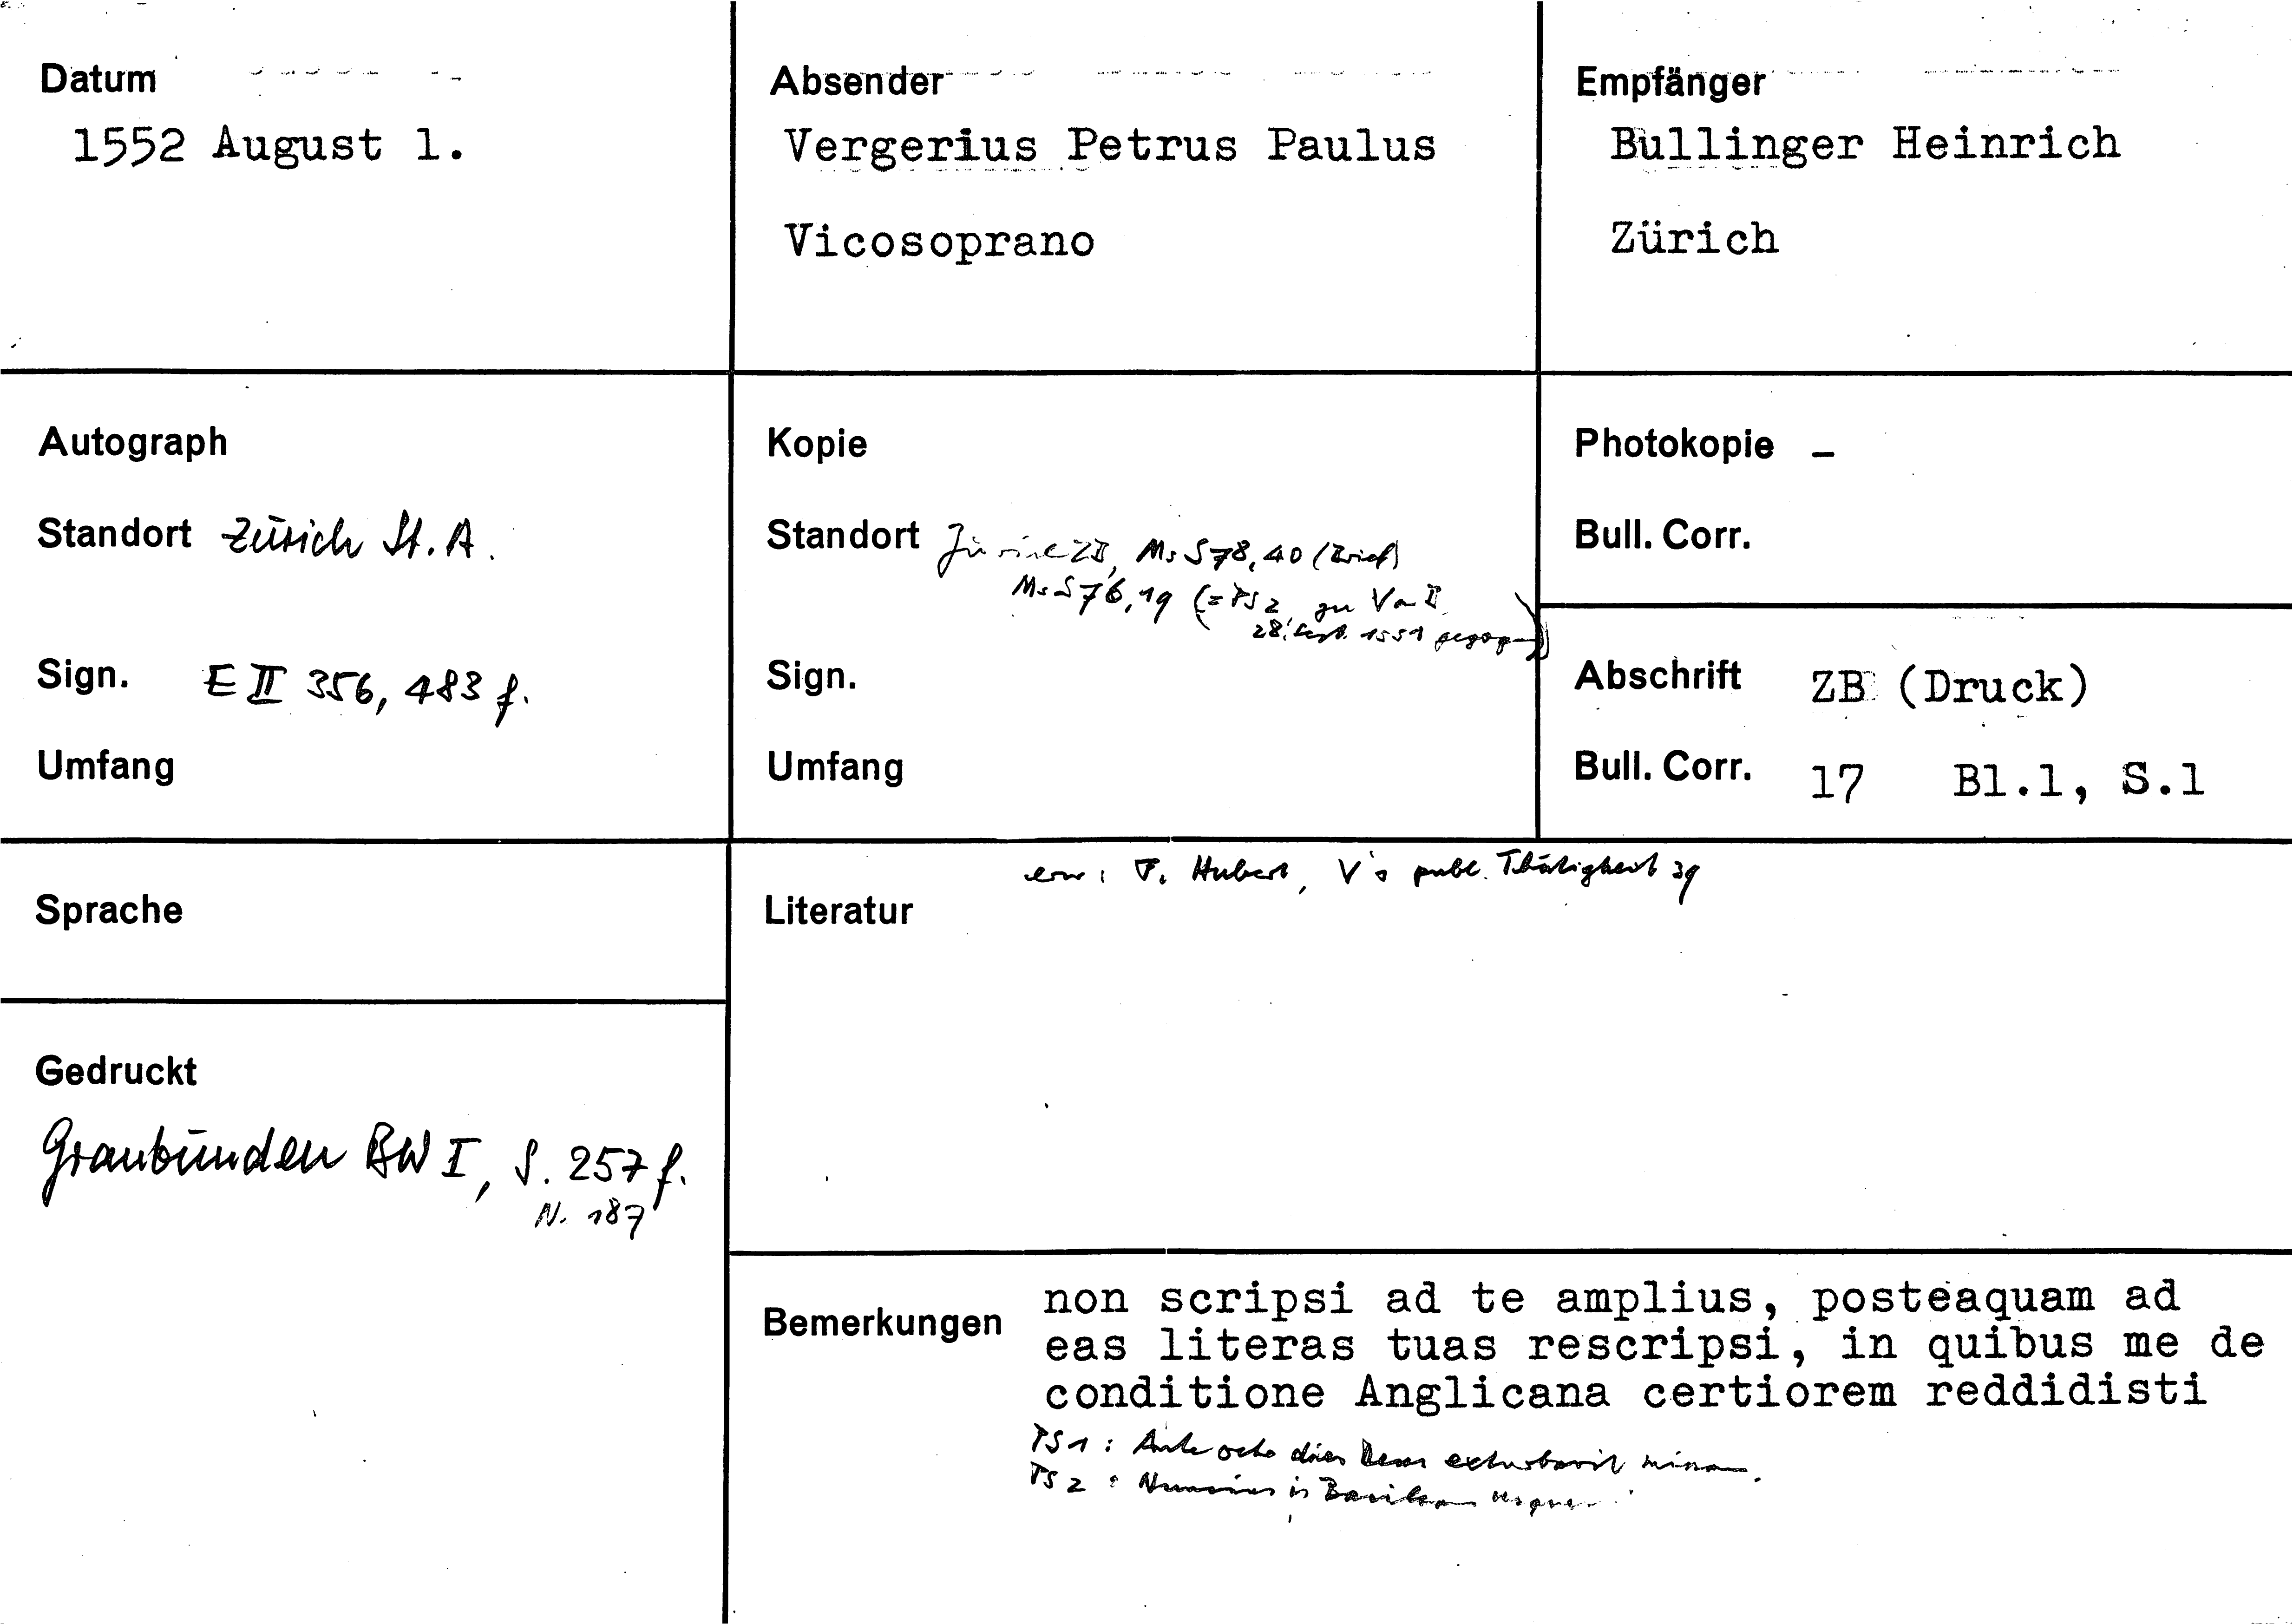 Datum
1552 August 1.
Absender
Vergerius Petrus Paulus
Vicosoprano
Empfänger
Bullinger Heinrich
Zürich
Autograph
Standort Zürich St. A.
Sign. E II 356, 483 f.
Umfang
Kopie
Standort Zürich ZB, Ms S 78, 40 (Brief)
Ms S 76, 19 (= PS 2, zu V an B
28. Sept. 1551 gezogen)
Sign.
Umfang
Photokopie –
Bull. Corr.
Abschrift ZB (Druck)
Bull. Corr. 17 Bl.1, S.1
Sprache
Literatur
erw: F. Hubert, V's publ. Thätigkeit 39
Gedruckt
Graubünden BW I, S. 257 f.
N. 187
Bemerkungen
non scripsi ad te amplius, posteaquam ad
eas literas tuas rescripsi, in quibus me de
conditione Anglicana certiorem reddidisti
PS 1 : Ante octo dies
PS 2 : Nuncius is